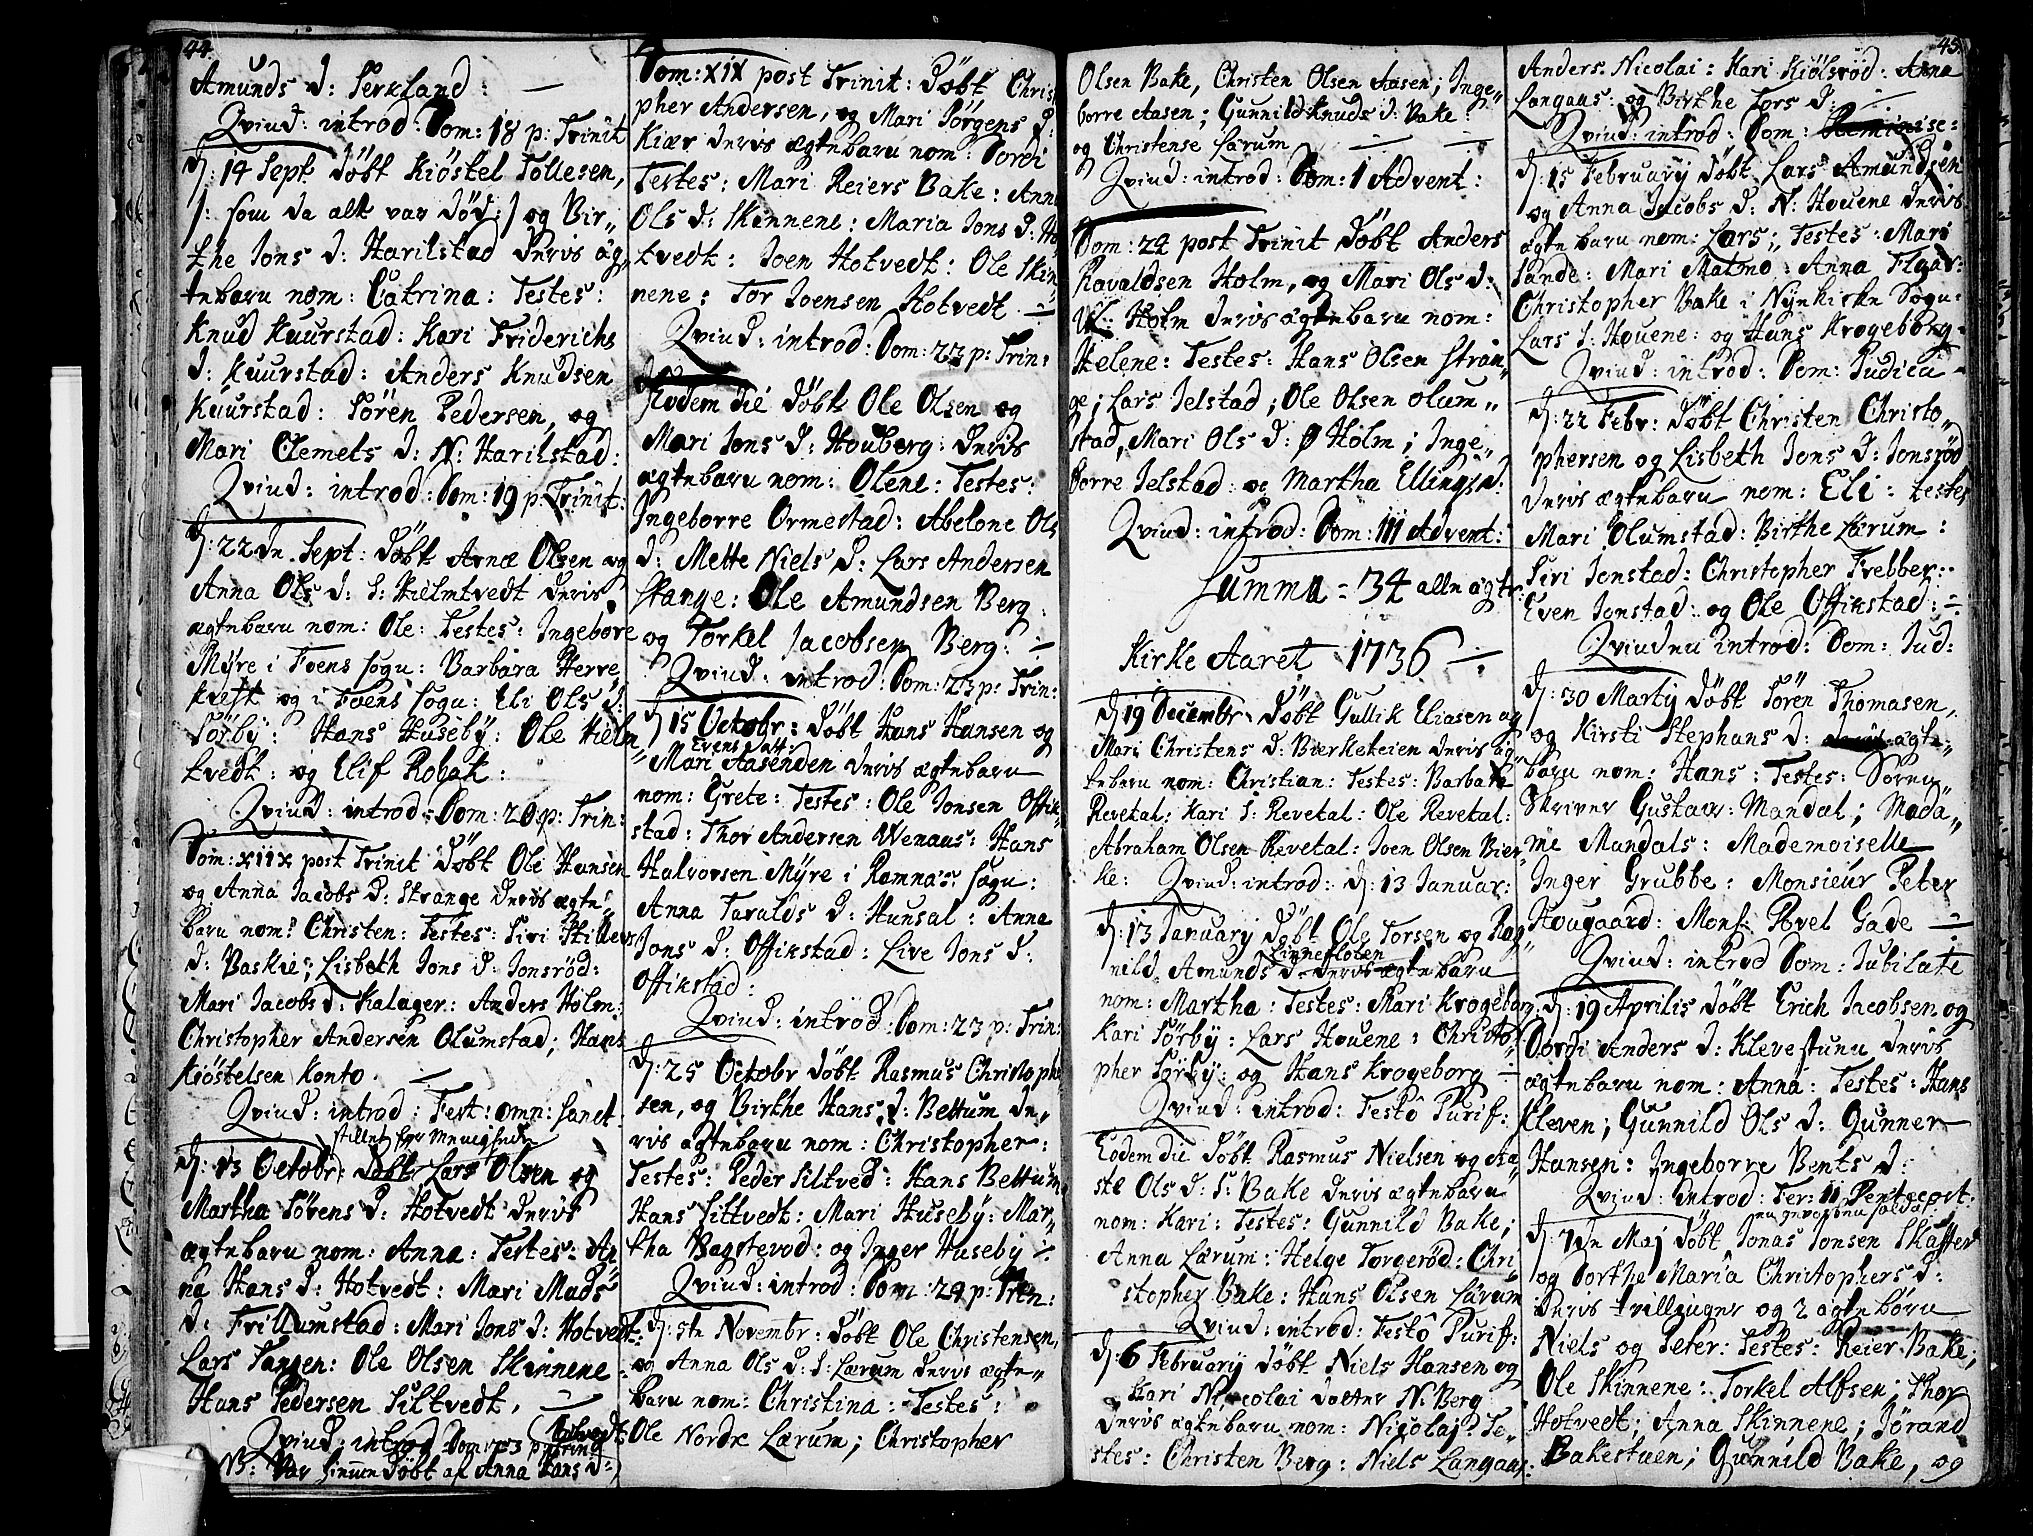 44.
Amunds D: Serkland: —
Qvind: introd: Dom: 18 p: Trinit
D: 14 Sept döbt Kiöstel Tollesen,
/: som da alt var död :/ og Bir„
the Jons D: Harilstad deris æg„
tebarn nom: Catrina: Testes:
Knud Kuurstad: Kari Friderichs
D: Kuurstad: Anders Knudsen
Kuurstad: Sören Pedersen, og
Mari Clemets D: N: Harilstad:
Qvind: introd: Dom: 19 p: Trinit:
D: 22de Sept: döbt Arne Olsen og
Anna Ols D: S: Hielmtvedt deris
ægtebarn nom: Ole: Testes: Ingebore
Myre i Foens sogn: Barbara Herre„
kvest og i Foens sogn: Eli Ols D:
Sörby: Hans Huseby: Ole Hielm„
tvedt: og Elif Robak:
Qvind: introd: Dom: 20 p: Trin:
Dom: XIIX post Trinit döbt Ole Hansen
og Anna Jacobs D: Strange deris ægte„
barn nom: Christen: Testes: Siri Stillevs
D: Baskie; Lisbeth Jons D: Jonsröd:
Mari Jacobs D: Kalager: Anders Holm:
Christopher Andersen Olumstad; Hans
Kiöstelsen Konto. —
Qvind: introd: Fest: omn: Sanct.
stillet for Menigheden
D: 13 Octobr: döbt Lars Olsen og
Martha Sörens D: Hotvedt deris
ægtebarn nom: Anna: Testes: An„
na Hans D: Hotvedt: Mari Mads
D: Frillumstad: Mari Jons D: Hotvedt:
Lars Sangen: Ole Olsen Skinnene:
Hans Pedersen Siltvedt. —
Qvind: introd Dom: 23 p trinit
NB: Var hiemme döbt af Anna Hans D: Hotvedt
Dom: XIX post Trinit: döbt Chris„
pher Andersen, og Mari Jörgens D:
Kiær deris ægtebarn nom: Dordi
Testes: Mari Reiers Bake: Anne
Ols D: Skinnene: Maria Jons D: Ho
tvedt: Joen Hotvedt: Ole Skin
nene: Tor Joensen Hotvedt. —
Qvind: introd: Dom: 22 p: Trin:
Eodem die döbt Ole Olsen og
Mari Jons D: Houberg: deris
ægtebarn nom: Olene: Testes:
Ingeborre Ormestad: Abelone Ols
D: Mette Niels D: Lars Andersen
Stange: Ole Amundsen Berg:
og Torkel Jacobsen Berg: —
Qvind: introd: Dom: 23 p: Trin:
D 15 Octobr: döbt Hans Hansen og
Evens Datt:
Mari Aasenden deris ægtebarn
nom: Grete: Testes: Ole Jonsen Offik„
stad: Thor Andersen Wenaas: Hans
Halvorsen Myre i Ramnæs sogn:
Anna Taralds D: Hunsal: Anna
Jons D: Offikstad: Live Jons D:
Offikstad:
Qvind: introd: Dom: 23 p: Trin:
D: 25 Octobr döbt Rasmus Christophe
sen, og Birthe Hans D: Bettum de„
ris ægtebarn nom: Christopher:
Testes: Peder Siltved: Hans Bettum
Hans Sittvedt: Mari Huseby: Mar„
tha Bagstevod: og Inger Huseby —
Qvind: introd: Dom: 24 p: Trin:
D: 5te Novembr: döbt Ole Christensen,
og Anna Ols D: S: Lærum deris ægte„
barn nom: Christina: Testes:
Ole Nordre Lærum; Christopher
45.
Olsen Bake, Christen Olsen Aasen; Inge„
borre Aasen; Gunnild Knuds D: Bake:
og Christense Lærum — —
Qvind: introd: Dom: 1 Advent:
Dom: 24 post Trinit döbt Anders
Ravaldsen Holm, og Mari Ols D:
Holm deris ægtebarn nom:
Helene: Testes: Hans Olsen Stran„
ge; Lars Jelstad; Ole Olsen Olum„
stad, Mari Ols D: Ø Holm; Inge„
borre Jelstad: og Martha Ellings D:
Qvind: introd: Dom: III Advent:
Summa = 34 alle ægte:
Kirke Aaret 1736 —
D 19 Decembr döbt Gullik Eliasen og
Mari Christens D: Bierketeien deris æg
tebarn nom: Christian: Testes: Barbara
Revetal: Kari S: Revetal: Ole Revetal:
Abraham Olsen Revetal: Joen Olsen Bier„
ke: Qvind: introd: D: 13 Januar:
D: 13 January döbt Ole Torsen og Rag„
Linneflöten
nild Amunds D: deris ægtebarn
nom: Martha: Testes: Mari Krogeborg
Kari Sörby: Lars Houene: Christo„
pher Sörby: og Hans Krogeborg —
Qvind: introd: Festô Purif:
Eodem die döbt Rasmus Nielsen og Aa„
ste Ols D: S: Bake deris ægtebarn
nom: Kari: Testes: Gunnild Bake;
Anna Lærum: Helge Torgeröd: Chri„
stopher Bake: Hans Olsen Lærum
Qvind: introd: Festô Purif:
D: 6 February döbt Niels Hansen og
Kari Niccolai daatter N: Berg
deris ægtebarn nom: Nicolaj: Te„
stes: Christen Berg: Niels Langaas:
Anders Nicolai: Kari Kiölsröd: Anna
Langaas: og Birthe Lars D: —
Qvind: introd: Dom: Reminise:
D: 15 February döbt Lars Amundsen
og Anna Jacobs D: N: Houene deris
ægtebarn nom: Lars; Testes: Mari
Sande: Mari Malmo: Anna Flaar:
Christopher Bake i Nykirke Sogn:
Lars S: Houene: og Hans Krogeborg —
Qvind: introd: Dom: Judica —
D: 22 Febr: döbt Christen Christo„
phersen og Lisbeth Jons D: Jonsröd
deris ægtebarn nom: Eli: testes
Mari Olumstad: Birthe Lærum:
Siri Jonstad: Christopher Frebber:
Even Jonstad: og Ole Offikstad: —
Qvinden introd: Dom: Jud:
D: 30 Martij döbt Sören Thomasen,
og Kirsti Stephans D: deris ægte„
barn nom: Hans: Testes: Soren
Skriver Gustav: Mandal; Mada„
me Mandals: Mademoiselle
Inger Grubbe: Monsieur Peter
Hougaard: Mons: Povel Gade —
Qvind: introd Dom: Jubilate
D: 19 Aprilis döbt Erich Jacobsen og
Dordi Anders D: Klevestuen deris
ægtebarn nom: Anna: Testes: Hans
Kleven; Gunnild Ols D: Gunner
Hansen: Ingeborre Bents D:
Qvind: introd: Fer: II Pentecost:
en geworben soldat
D: 1de Maj döbt Jonas Jonsen Skaffer
og Dorthe Maria Christophers D:
deris trillinger og 2 ægtebörn
Niels og Peter: Testes: Reier Bake;
Ole Skinnene: Torkel Alfsen; Thor
Hotvedt; Anna Skinnene; Jörand
Bakestuen; Gunnild Bake, og